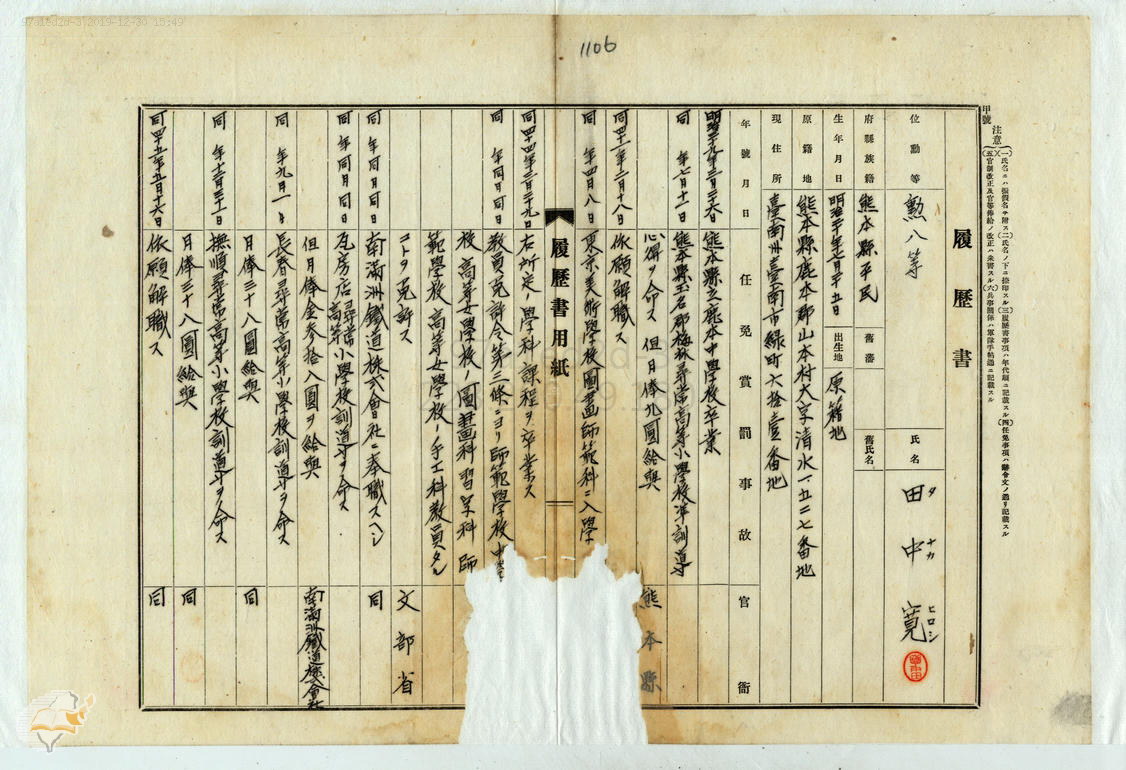 1106
甲號
注意
(一)氏名ニハ振假名ヲ附ス(二)氏名ノ下ニ捺印スル(三)履歷書事項ハ年代順ニ記載スル(四)任免事項ハ辭令文ノ通リ記載スル
(五)官制改正及官等俸給ノ改正ハ朱書スル(六)兵事關係ハ軍隊手帖通ニ記載スル
履歷書
位勳等 勲八等
氏名 田中寛
タ ナカ ヒロシ
府縣族籍 熊本縣平民
舊藩
舊氏名
生年月日 明治二十年七月二十五日
出生地 原籍地
原籍地 熊本縣鹿本郡山本村大字清水一五二七番地
現住所 臺南州臺南市緑町六拾壹番地
年號月日 任免賞罰事故 官衙
明治三十九年三月二十六日 熊本縣立鹿本中學校卒業
同 年七月十一日 熊本縣玉名郡梅林尋常高等小學校准訓導
心得ヲ命ス 但月俸九圓給與 熊本縣
同四十一年三月十八日 依願解職ス
同 年四月八日 東京美術學校圖畫師範科ニ入學
履歷書用紙
同四十四年三月二十九日 右所定ノ學科課程ヲ卒業ス
同 年同月同日 教員免許令第三條ニヨリ師範學校中學
校高等女學校ノ圖畫科習字科師
範學校高等女學校ノ手工科教員タル
コトヲ免許ス 文部省
同 年同月同日 南滿洲鐵道株式會社ニ奉職スヘシ 同
同 年同月同日 瓦房店尋常高等小學校訓導ヲ命ス
但月俸金参拾八圓ヲ給與 南滿洲鐵道株式會社
同 年九月一日 長春尋常高等小學校訓導ヲ命ス
月俸三十八圓給與 同
同 年十二月三十一日 撫順尋常高等小學校訓導ヲ命ス
月俸三十八圓給與 同
同四十五年五月十六日 依願解職ス 同